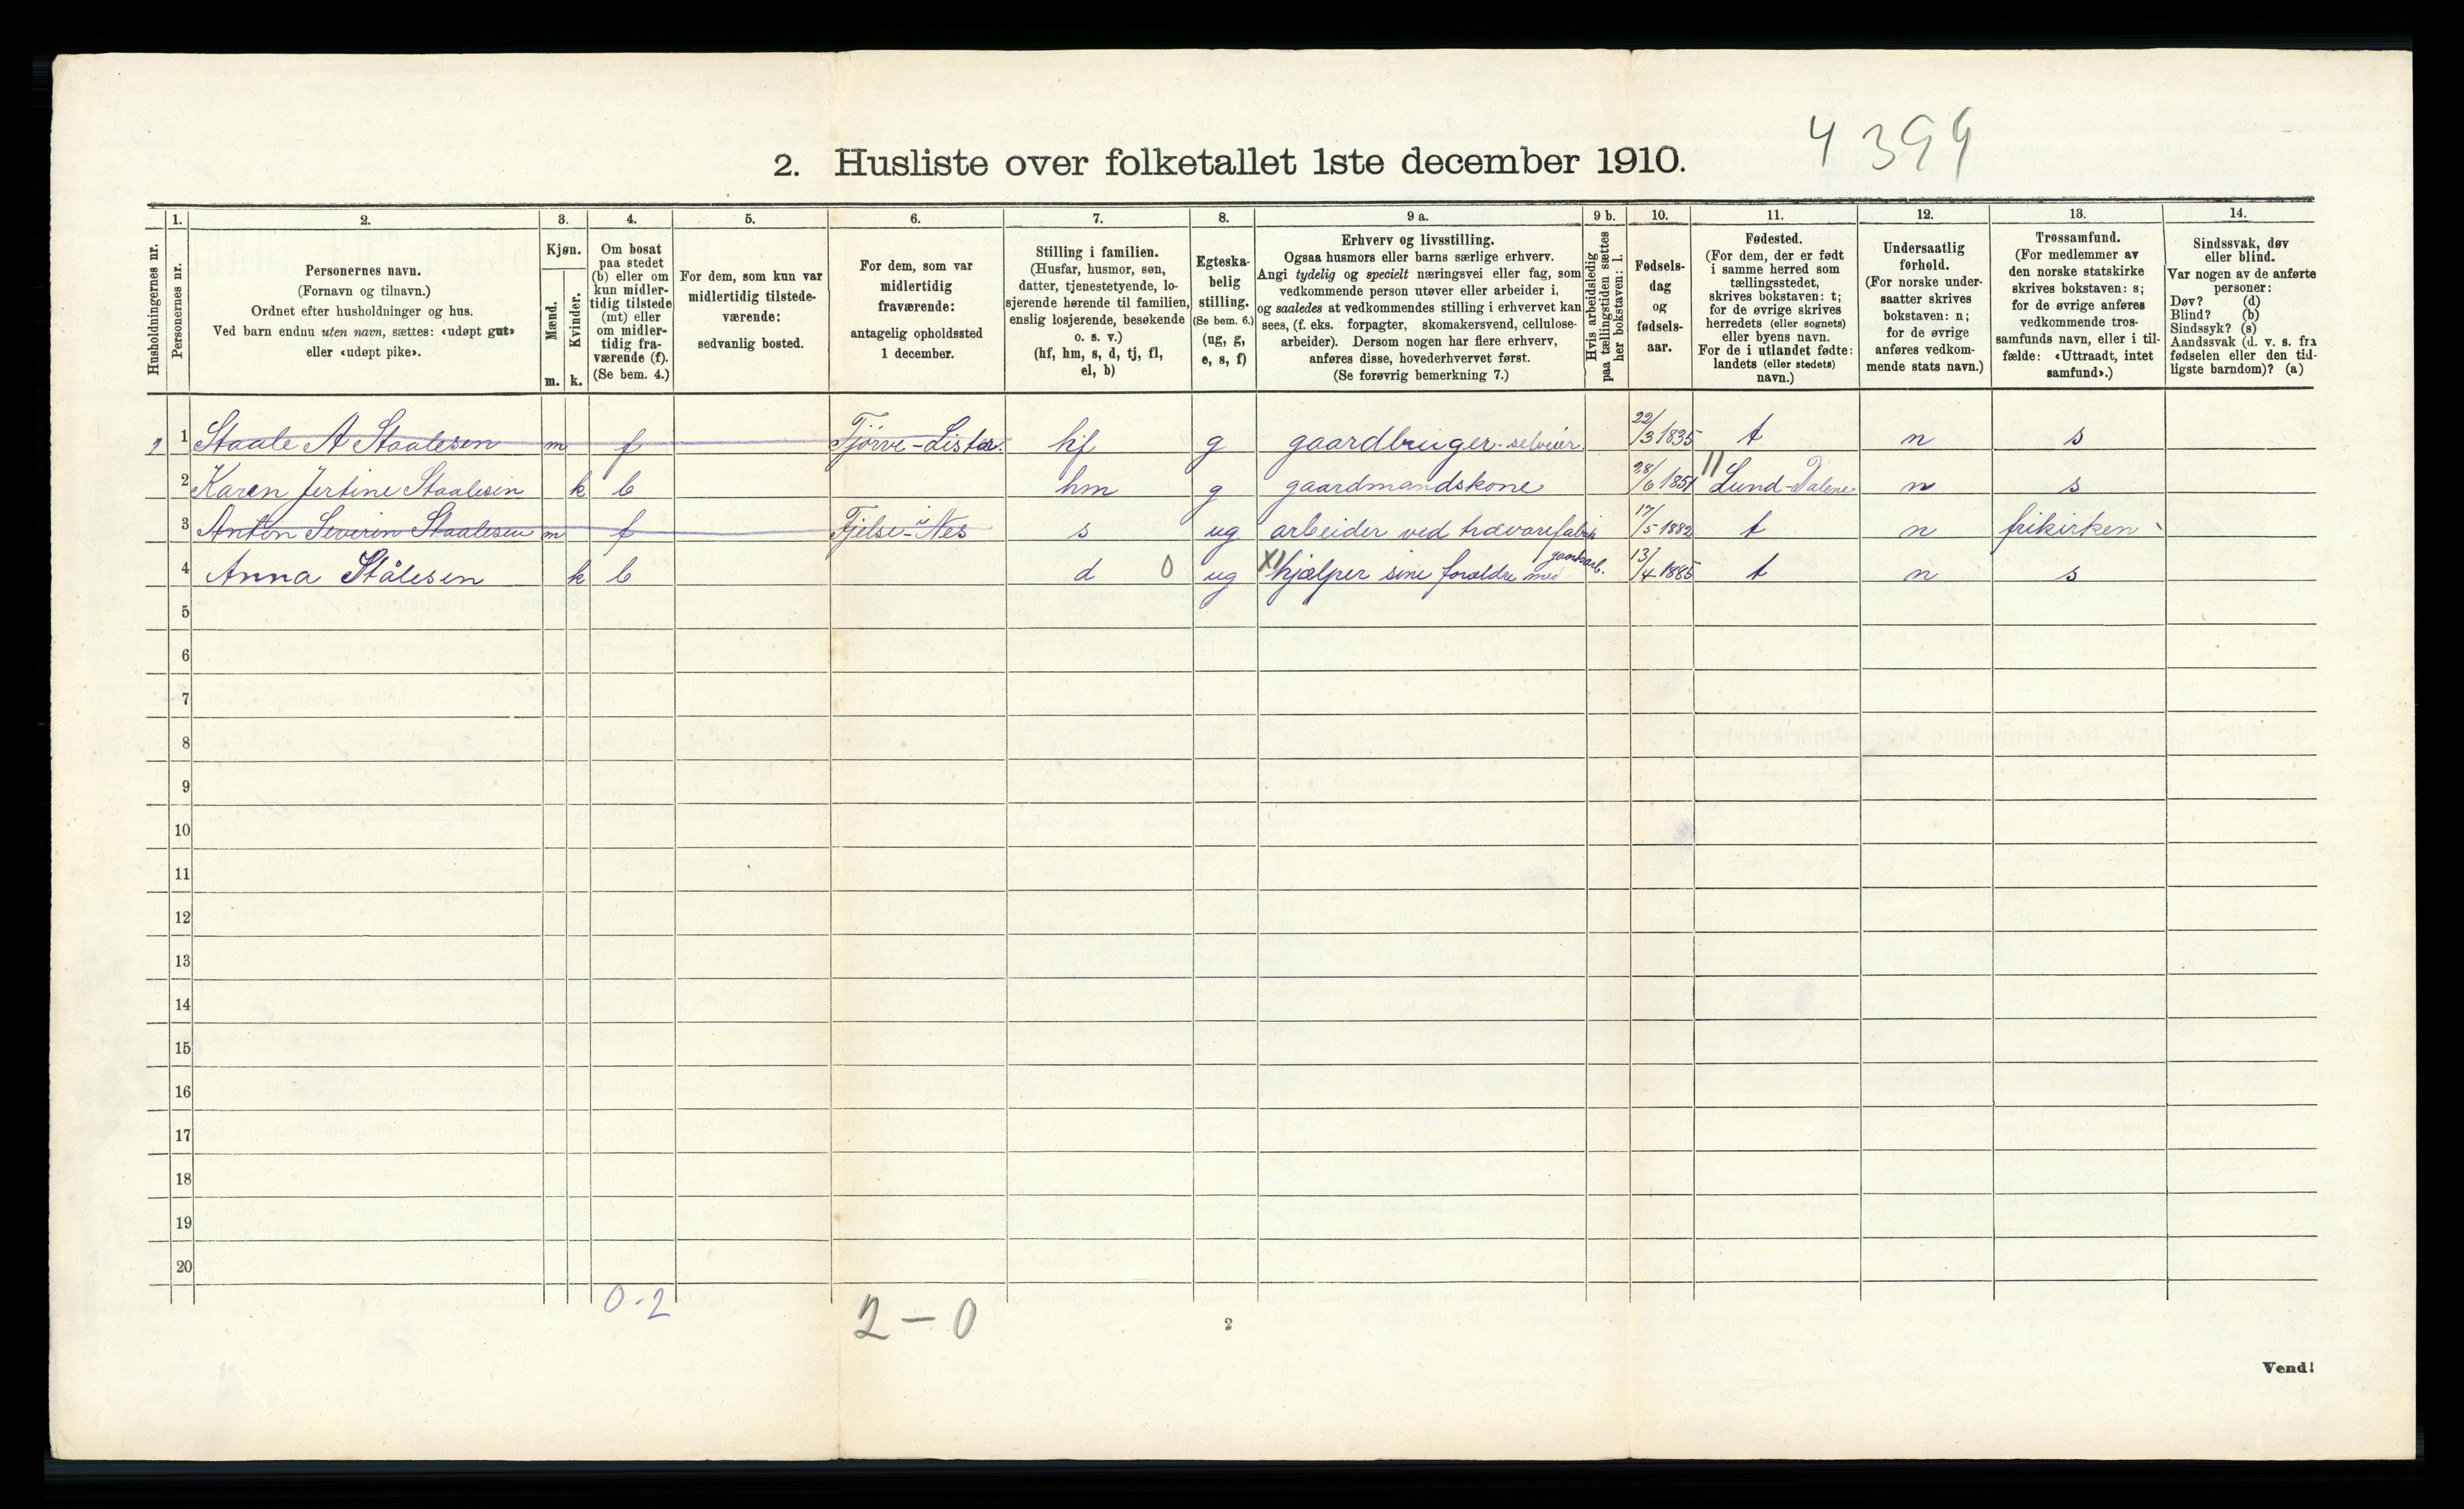 4399
2. Husliste over folketallet 1ste december 1910.
Husholdningernes nr.
1.
Personernes nr.
2.
Personernes navn.
(Fornavn og tilnavn.)
Ordnet efter husholdninger og hus.
Ved barn endnu uten navn, sættes: «udøpt gut»
eller «udøpt pike».
3.
Kjøn.
Mænd.
Kvinder.
m. k.
4.
Om bosat
paa stedet
(b) eller om
kun midler-
tidig tilstede
(mt) eller
om midler-
tidig fra-
værende (f).
(Se bem. 4.)
5.
For dem, som kun var
midlertidig tilstede-
værende:
sedvanlig bosted.
6.
For dem, som var
midlertidig
fraværende:
antagelig opholdssted
1 december.
7.
Stilling i familien.
(Husfar, husmor, søn,
datter, tjenestetyende, lo-
sjerende hørende til familien,
enslig losjerende, besøkende
o. s. v.)
(hf, hm, s, d, tj, fl,
el, b)
8.
Egteska-
belig
stilling.
(Se bem. 6.)
(ug, g,
e, s, f)
9 a.
Erhverv og livsstilling.
Ogsaa husmors eller barns særlige erhverv.
Angi tydelig og specielt næringsvei eller fag, som
vedkommende person utøver eller arbeider i,
og saaledes at vedkommendes stilling i erhvervet kan
sees, (f. eks. forpagter, skomakersvend, cellulose-
arbeider). Dersom nogen har flere erhverv,
anføres disse, hovederhvervet først.
(Se forøvrig bemerkning 7.)
9 b.
Hvis arbeidsledig
paa tællingstiden sættes
her bokstaven: l.
10.
Fødsels-
dag
og
fødsels-
aar.
11.
Fødested.
(For dem, der er født
i samme herred som
tællingsstedet,
skrives bokstaven: t;
for de øvrige skrives
herredets (eller sognets)
eller byens navn.
For de i utlandet fødte:
landets (eller stedets)
navn.)
12.
Undersaatlig
forhold.
(For norske under-
saatter skrives
bokstaven: n;
for de øvrige
anføres vedkom-
mende stats navn.)
13.
Trossamfund.
(For medlemmer av
den norske statskirke
skrives bokstaven: s;
for de øvrige anføres
vedkommende tros-
samfunds navn, eller i til-
fælde: «Uttraadt, intet
samfund».)
14.
Sindssvak, døv
eller blind.
Var nogen av de anførte
personer:
Døv? (d)
Blind? (b)
Sindssyk? (s)
Aandssvak (d. v. s. fra
fødselen eller den tid-
ligste barndom)? (a)
1 Staale A Staalesen m f Tjørve-Lister. hf g gaardbruger-selveier. 22/3 1835 t n s
2 Karen Jertine Staalesen k b hm g gaardmandskone 28/6 1851 Lund-Dalene n s
3 Anton Severin Staalesen m f Fjelse i Nes s ug arbeider ved trævarefabrik 17/5 1882 t n frikirken
4 Anna Stålesen k b d 0 ug XI hjælper sine forældre med gaardsarb. 13/4 1885 t n s
5
6
7
8
9
10
11
12
13
14
15
16
17
18
19
20
0-2
2-0
2
Vend!